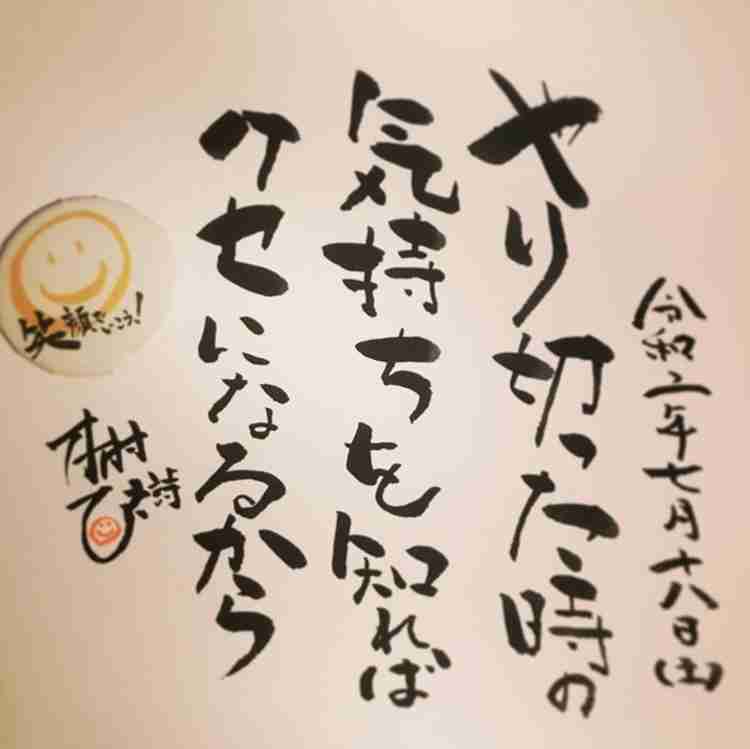 令和二年七月十八日(土)
やり切った時の
気持ちを知れば
クセになるから
笑顔でいこう!